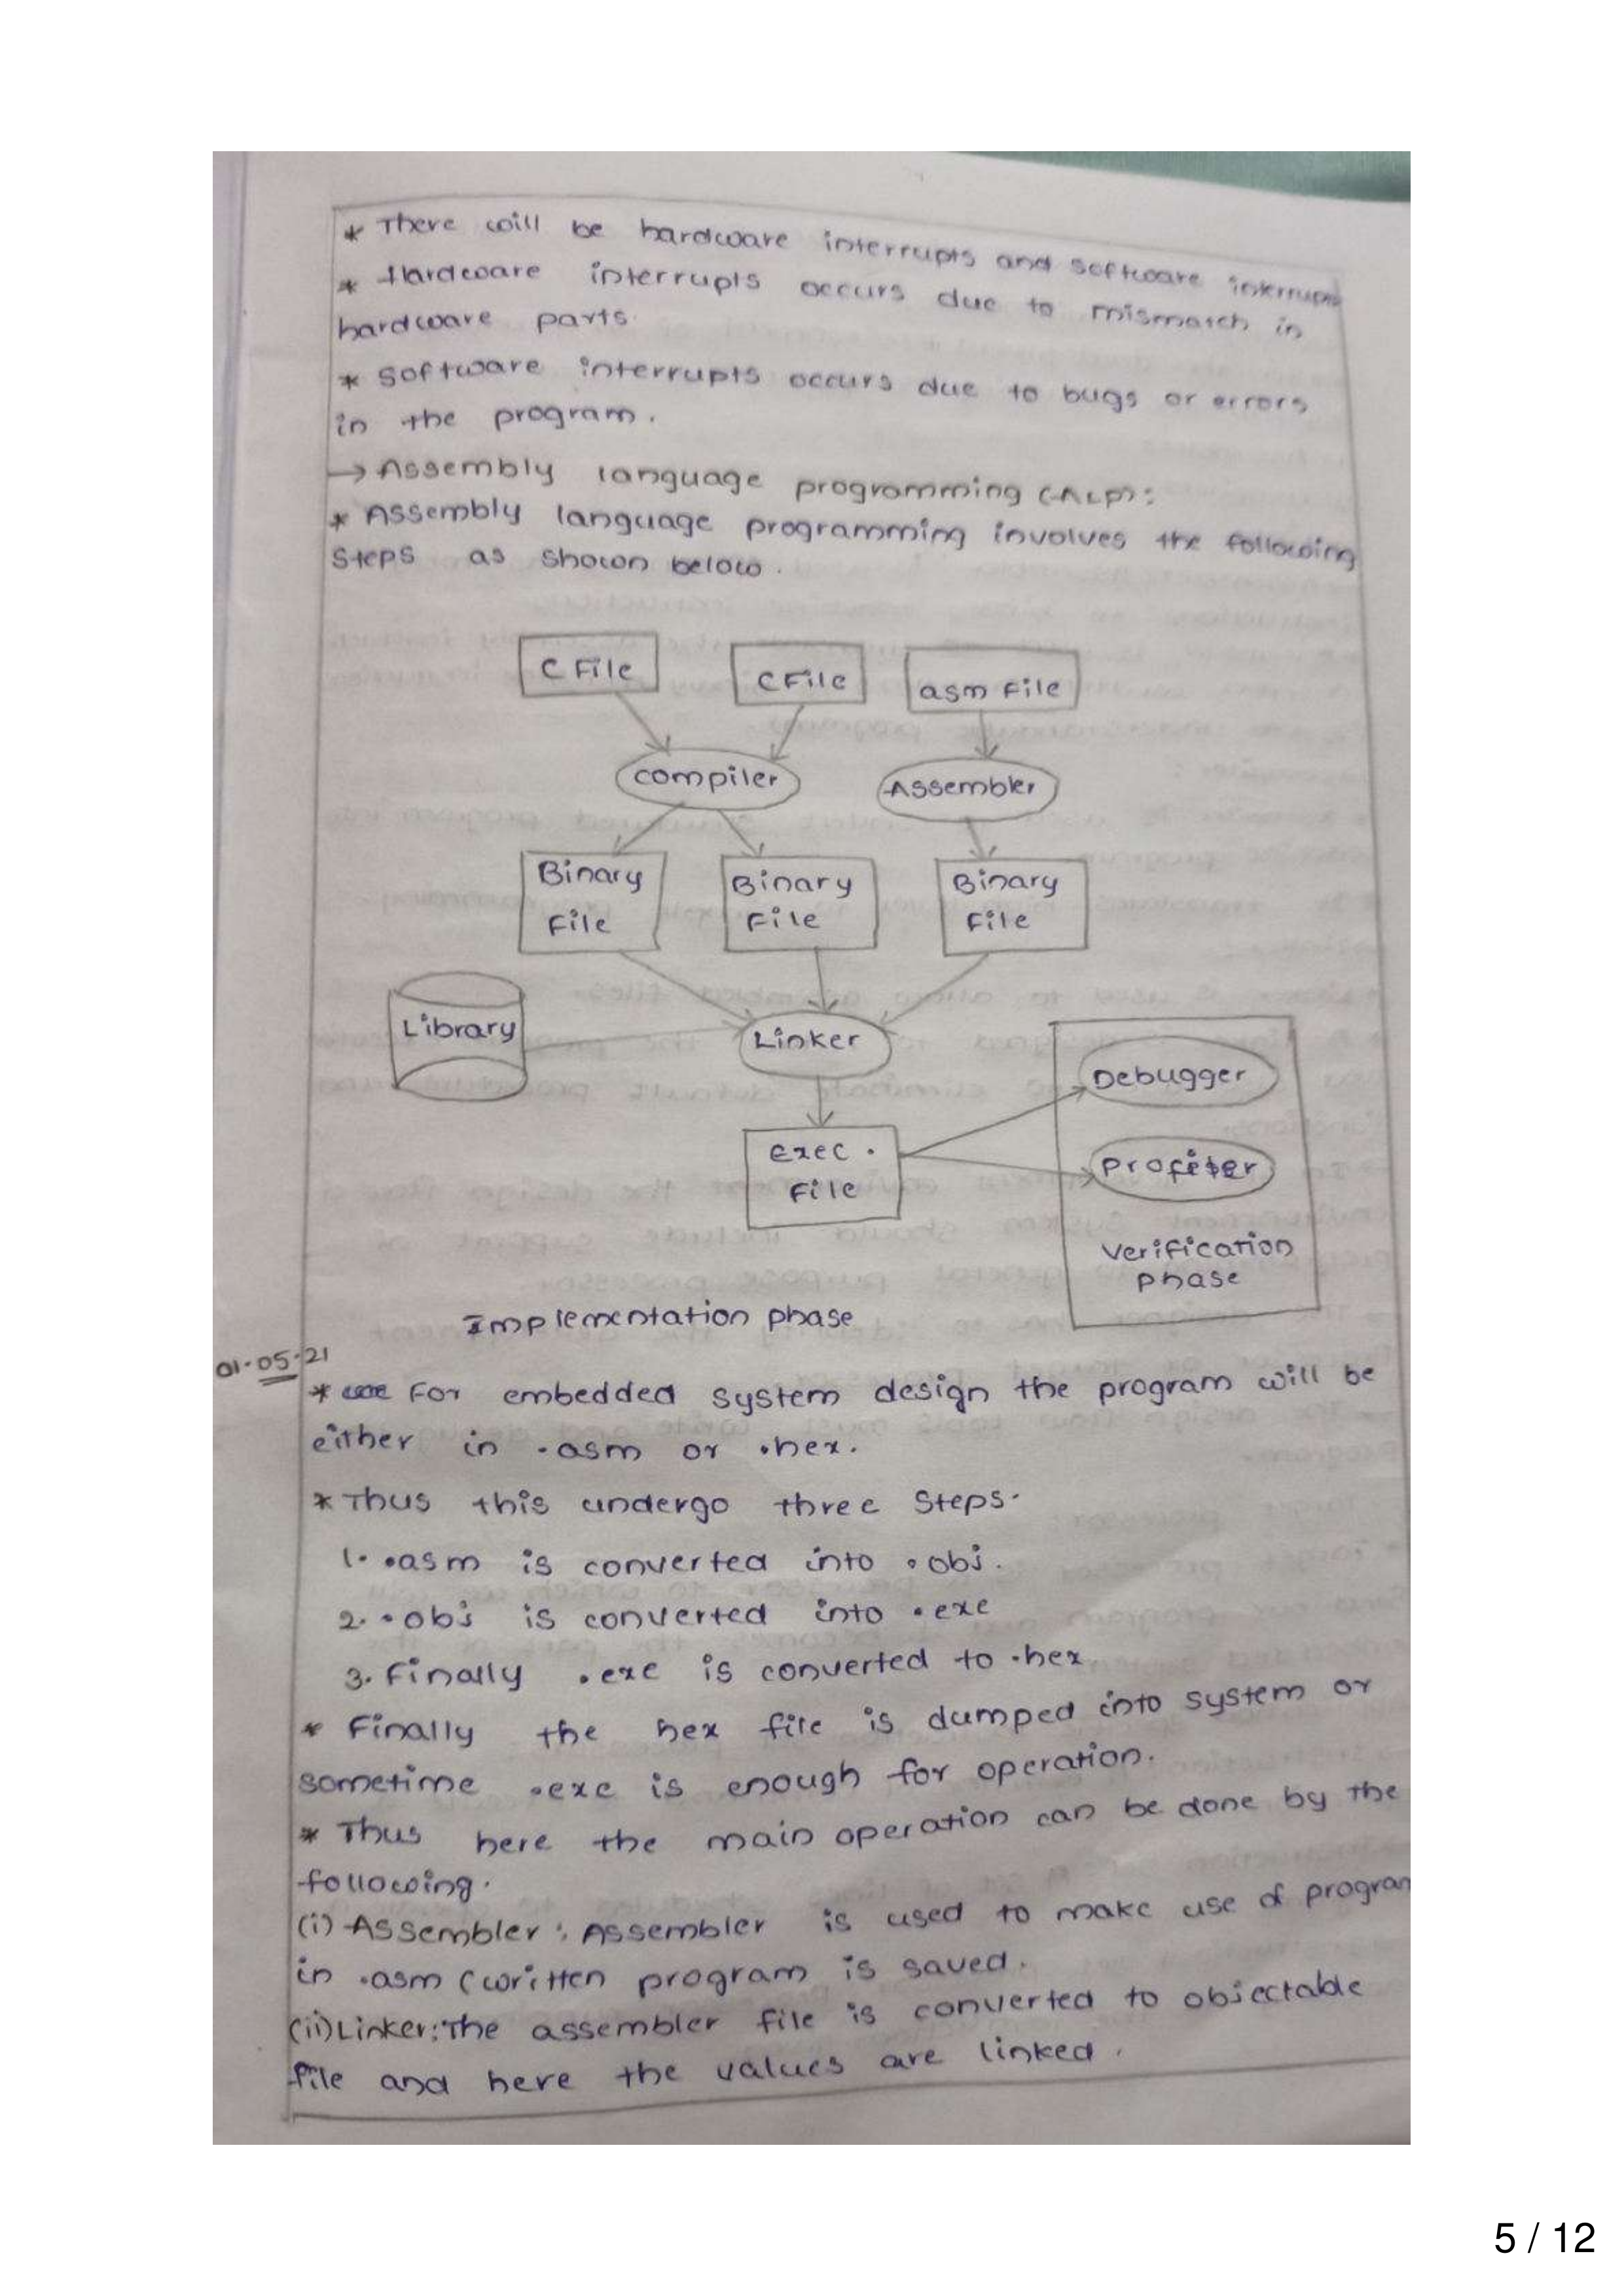 * There will be hardware interrupts and software interrupts
* Hardware interrupts occurs due to mismatch in
hardware parts.
* Software interrupts occurs due to bugs or errors
in the program.
→ Assembly language programming (ALP):
* Assembly language programming involves the following
Steps as shown below.
C File
C File
asm File
compiler
Assembler
Binary
File
Binary
File
Binary
File
Library
Linker
Debugger
exec.
File
Profiler
Verification
phase
Implementation phase
01.05.21
* For embedded system design the program will be
either in .asm or .hex.
* Thus this undergo three Steps.
1. .asm is converted into .obj.
2. .obj is converted into .exe
3. Finally .exe is converted to .hex
* Finally the hex file is dumped into system or
sometime .exe is enough for operation.
* Thus here the main operation can be done by the
following.
(i) Assembler: Assembler is used to make use of program
in .asm (written program is saved.
(ii) Linker: The assembler file is converted to objectable
file and here the values are linked.
5 / 12